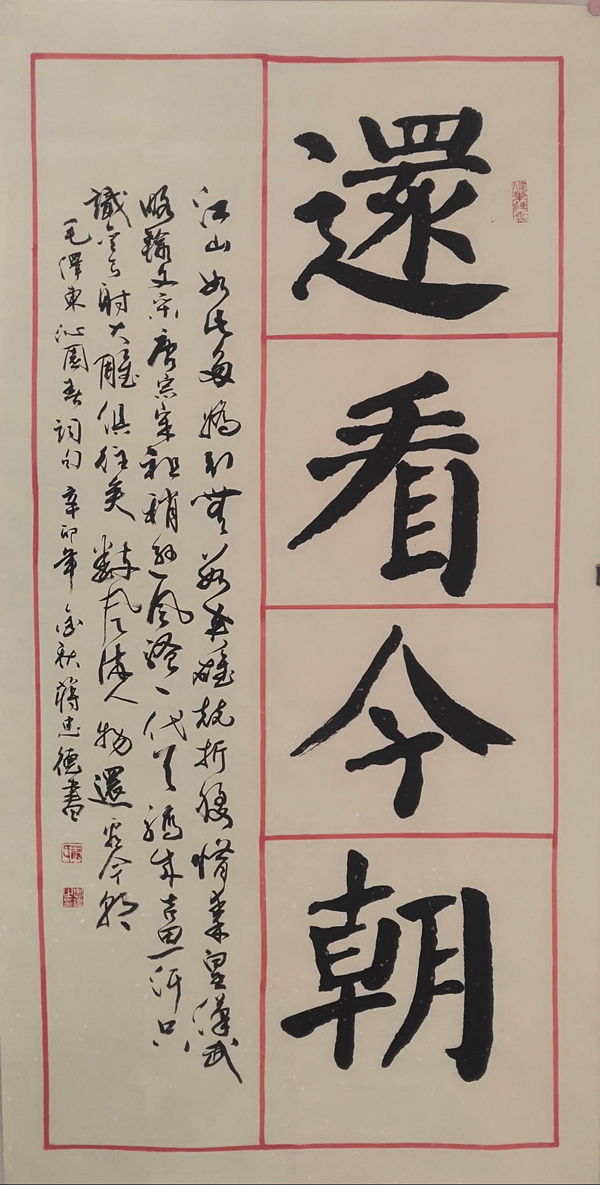 還看今朝
江山如此多嬌引無數英雄競折腰惜秦皇漢武
略輸文采唐宗宋祖稍遜風騷一代天驕成吉思汗只
識彎弓射大雕俱往矣數風流人物還看今朝
毛澤東沁園春詞句 辛卯年 金秋 蔣忠德書